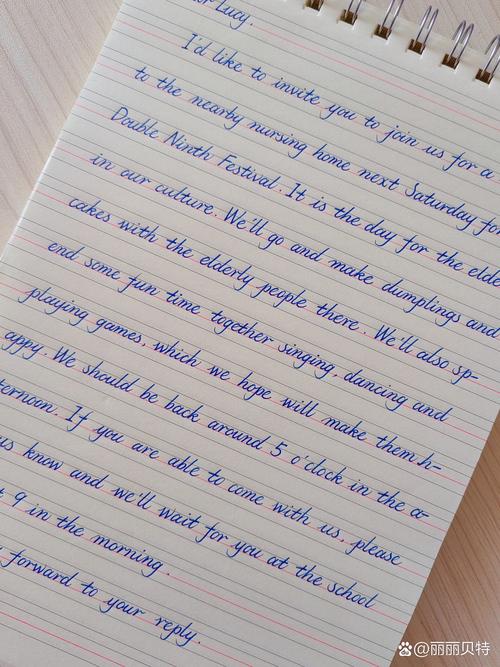 Lucy.
I'd like to invite you to join us for a
to the nearby nursing home next Saturday for
Double Ninth Festival. It is the day for the elde
in our culture. We'll go and make dumplings and
cakes with the elderly people there. We'll also sp-
end some fun time together singing, dancing and
playing games, which we hope will make them h-
appy. We should be back around 5 o'clock in the a-
ternoon. If you are able to come with us, please
us know and we'll wait for you at the school
9 in the morning.
forward to your reply.
百度@丽丽贝特